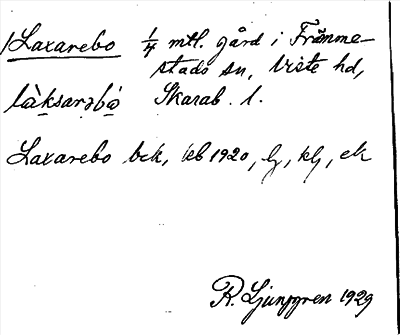 Laxarebo 1/4 mtl. gård i Främme-
stads sn, Viste hd,
làksarəbò Skarab. l.
Laxarebo bck, kb 1920, lj, klj, ek
R. Ljunggren 1929